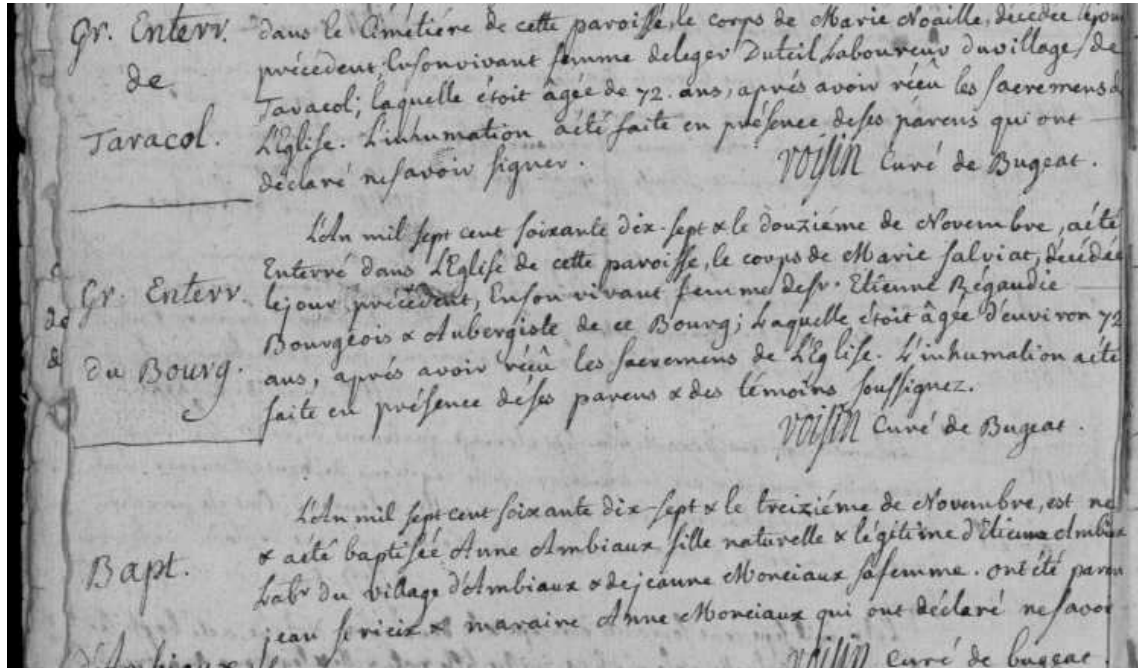 Gr. Enterr.
de
Taracol.
dans le Cimetiére de cette paroisse, le corps de Marie Noaille, décédée lejour
précédent, Ensonvivant femme deleger Duteil Laboureur duvillage de
Taracol; laquelle étoit âgée de 72. ans, aprés avoir réçû les sacremens de
L'Eglise. L'inhumation aété faite en présence deses párens qui ont
déclaré nesavoir signer.
voisin Curé de Bugeat.
Gr. Enterr.
du Bourg.
L'An mil sept cent soixante dix-sept & le douziéme de Novembre, aété
Enterré dans L'Eglise de cette paroisse, le corps de Marie Salviat, décédée
lejour précédent, Enson vivant femme desr. Etienne Régaudie
Bourgeois & Aubergiste de ce Bourg; Laquelle étoit âgée d'environ 72
ans, aprés avoir réçû les sacremens de L'Eglise. L'inhumation aété
faite en présence déses parens & des témoins soussignez.
voisin Curé de Bugeat.
Bapt.
L'An mil sept cent soixante dix-sept & le treiziéme de Novembre, est né
& aété baptisée Anne Ambiaux fille naturelle & légétime d'Etienne Ambiaux
Labr du village d'Ambiaux & dejeanne Monciaux safemme. ont été parein
jean & maraine Anne Monciaux qui ont déclaré nesavoir
voisin Curé de bugeat.
d'Ambiaux